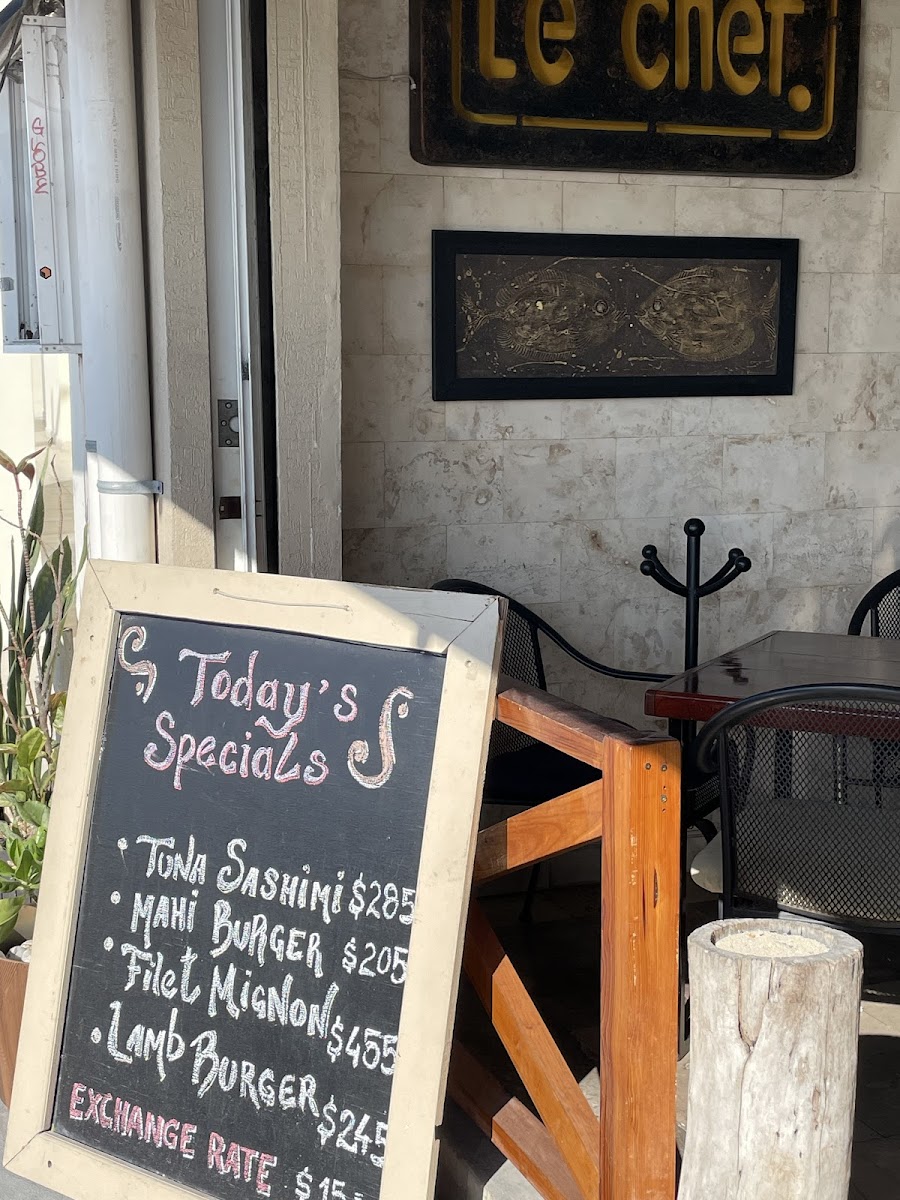 Le chef.
Today's
Specials
• Tuna Sashimi $285
• Mahi Burger $205
• Filet Mignon $455
• Lamb Burger $245
EXCHANGE RATE $15